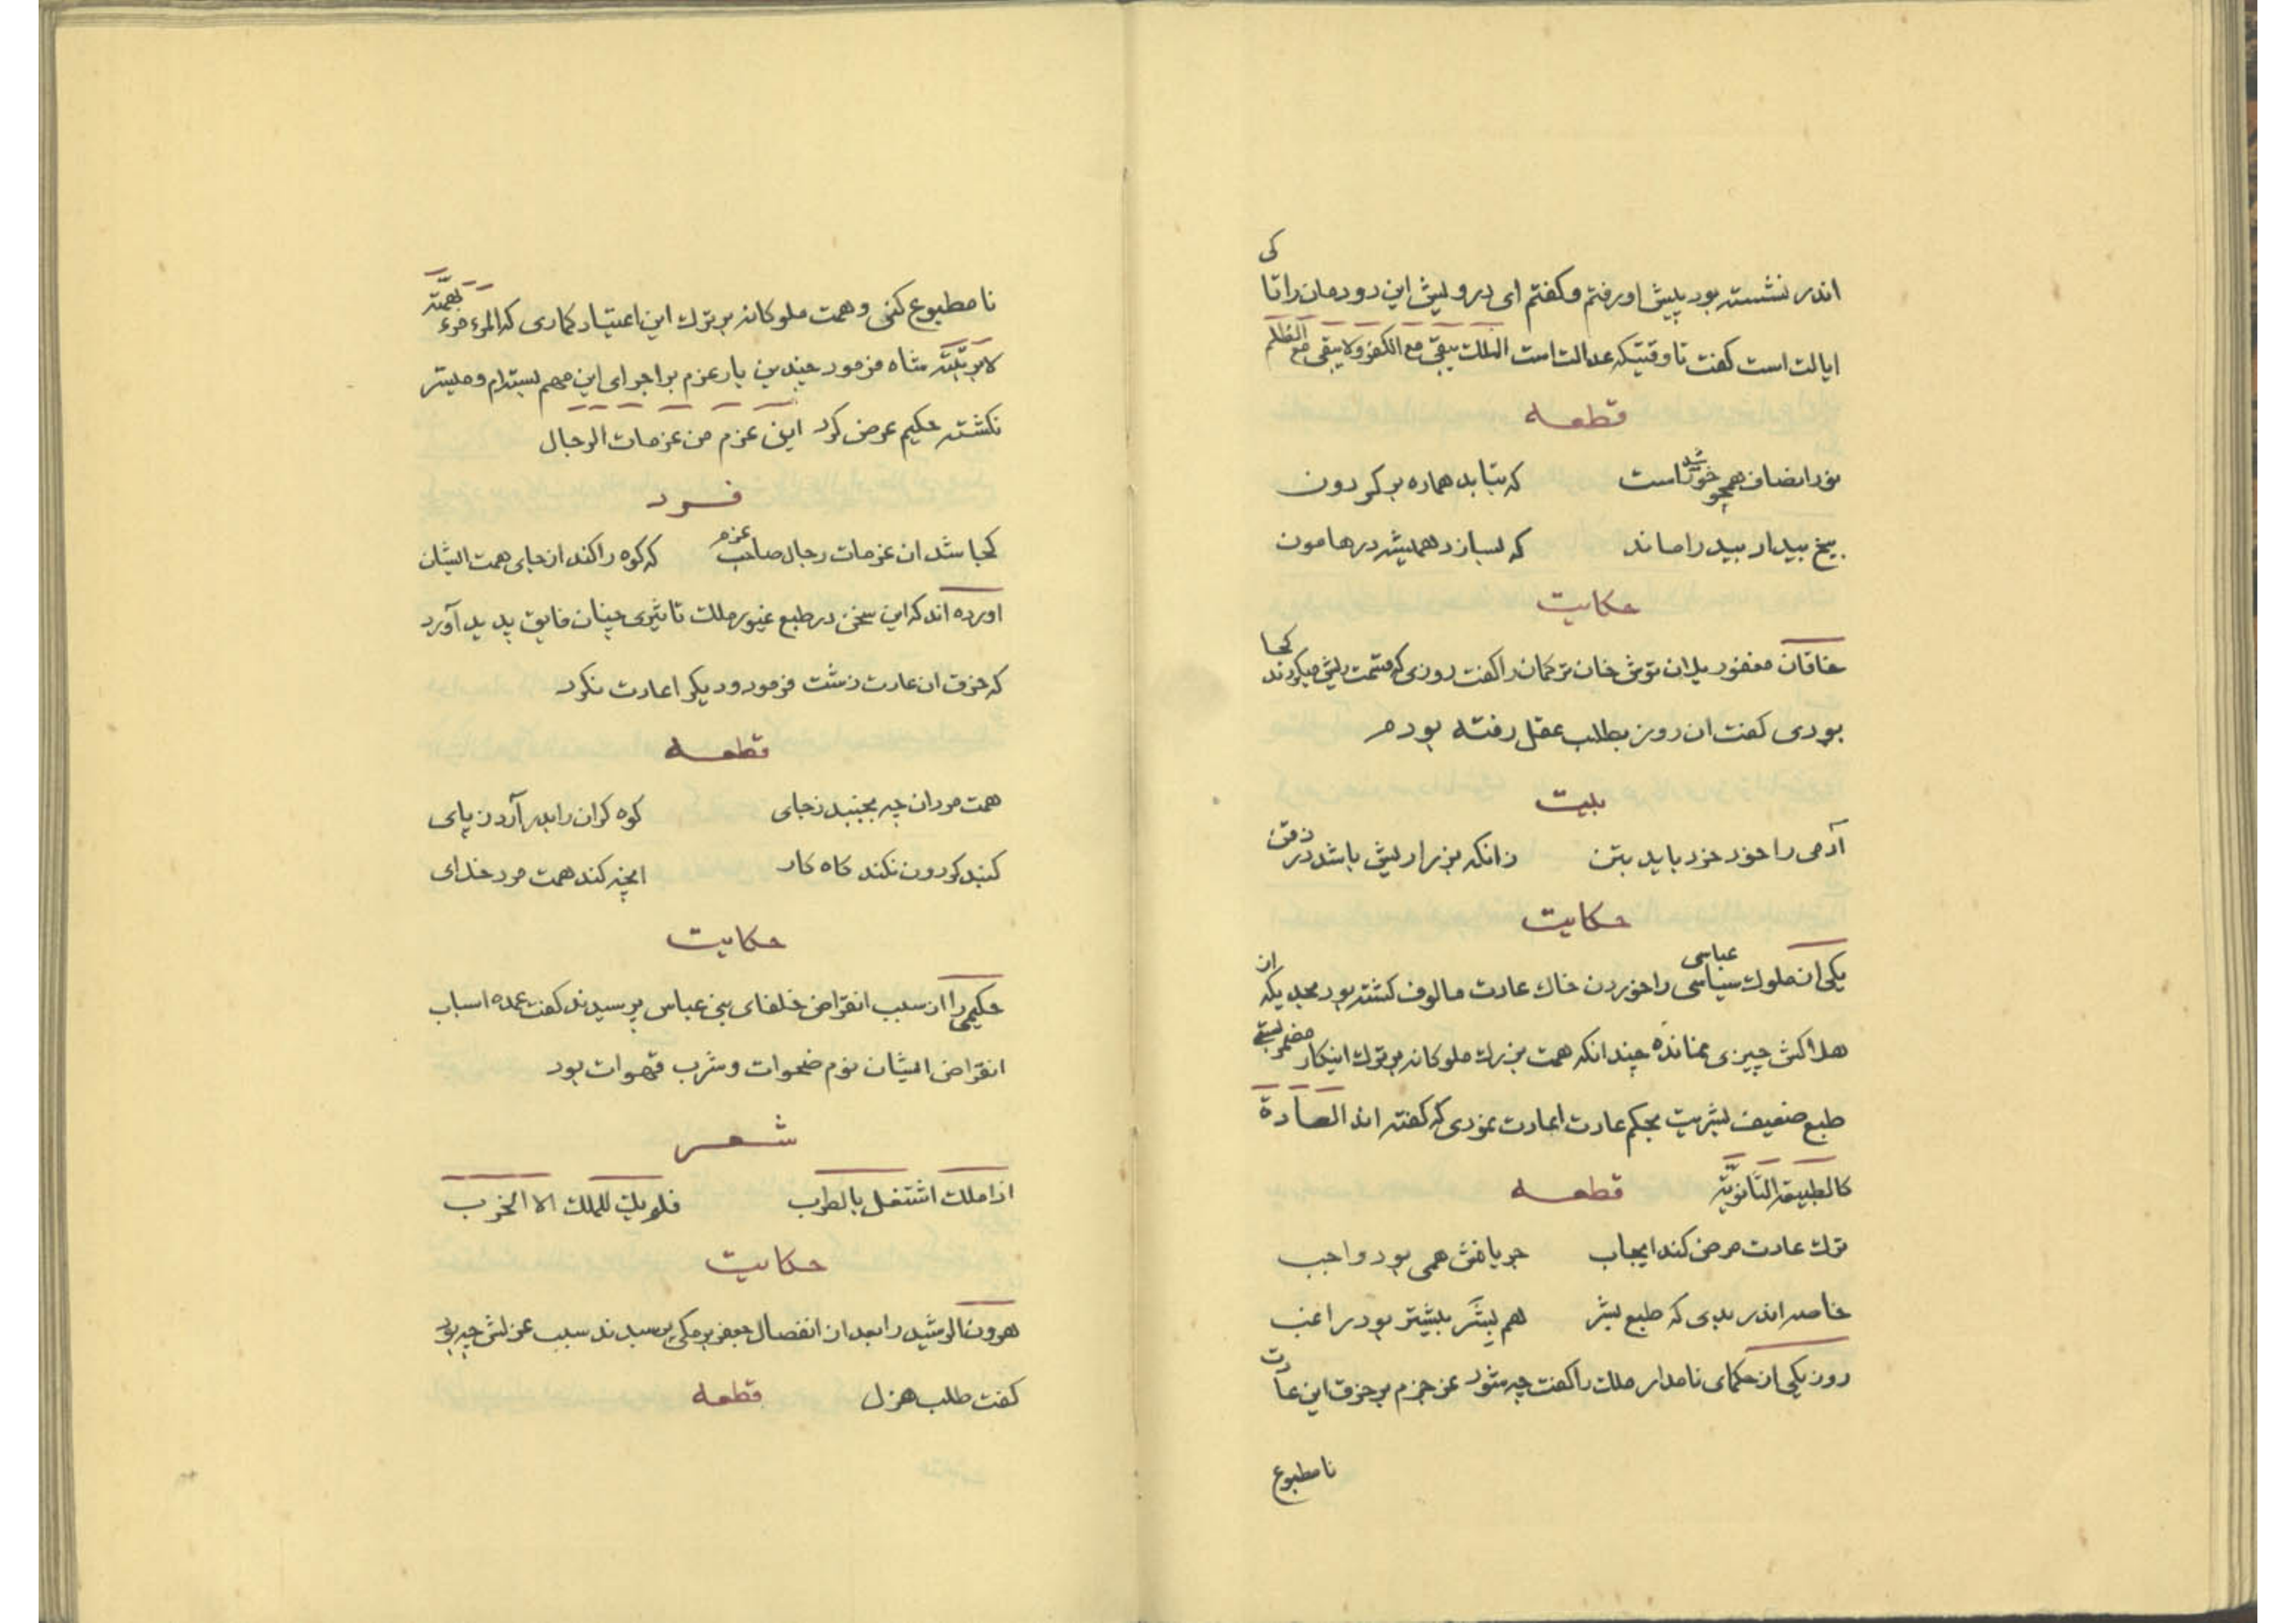 اندر نشسته بود پیش او رفتم و کفتم ای درویش این دودمان را تا کی
ایالت است کفت تا وقتیکه عدالت است الملك یبقی مع الکفر ولا یبقی مع الظلم
قطعه
نور انصاف همچو خورشید است که بتابد هماره بر کردون
بیخ بیداد بید را ماند که بسازد همیشه در هامون
حکایت
خاقان مغفور یلان توش خان ترکمان را کفت روزی که قسمت ریش میکردند کجا
بودی کفت ان روز بطلب عقل رفته بودم
بیت
آدمی را خود خرد باید بتن زانکه بز را ریش باشد در ذقن
حکایت
یکی از ملوك عباسی را خوردن خاك عادت مالوف کشته بود بحدیکه از
هلاکش چیزی نمانده چندانکه همت بزرك ملوکانه بر ترك اینکار مضمر بستی
طبع ضعیف بشریت بحکم عادت اعادت نمودی که کفته اند العادة
کالطبیعة الثانویّة قطعه
ترك عادت مرض کند ایجاب جریانش همی بود واجب
خاصه اندر بدی که طبع بشر هم بشر بیشتر بود راغب
روز یکی از حکمای نامدار ملك را کفت چه شود عز جزم بر خرق این عادت
نامطبوع
نامطبوع کنی و همت ملوکانه بر ترك این اعتیاد کماری که المرء مرء بهمّته
لا برتبته شاه فرمود چندین بار عزم بر اجرای این مهم بستدام و میسر
نکشته حکیم عرض کرد این عزم من عزمات الرجال
فرد
کجا شد ان عزمات رجال صاحب عزم که کوه را کند از جای همت ایشان
اورده اند که این سخن در طبع غیور ملك تاثیری چنان فایق پدید آورد
که خرق ان عادت زشت فرمود و دیکر اعادت نکرد
قطعه
همت مردان چه بجنبد زجای کوه کران را بدر آرد ز پای
کنبد کردون نکند کاه کار انچه کند همت مرد خدای
حکایت
حکیمی را از سبب انقراض خلفای بنی عباس پرسیدند کفت عمده اسباب
انقراض ایشان نوم ضحوات و شرب قهوات بود
شعر
اذا ملك اشتغل بالطرب فلم یك للملك الا الخرب
حکایت
هرون الرشید را بعد از انفصال جعفر برمکی پرسیدند سبب عزلش چه بود
کفت طلب هزل قطعه